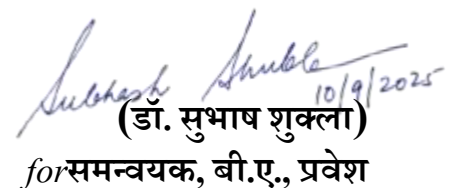 Subhash Shukla
10/9/2025
(डॉ. सुभाष शुक्ला)
forसमन्वयक, बी.ए., प्रवेश